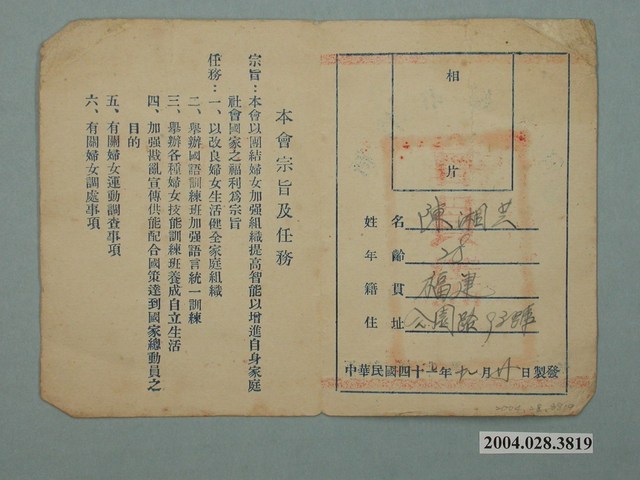 本會宗旨及任務
宗旨：本會以團結婦女加强組織提高智能以增進自身家庭
社會國家之福利爲宗旨
任務：一、以改良婦女生活健全家庭組織
二、舉辦國語訓練班加强語言統一訓練
三、舉辦各種婦女技能訓練班養成自立生活
四、加强戡亂宣傳供能配合國策達到國家總動員之
目的
五、有關婦女運動調查事項
六、有關婦女調處事項
相
片
姓名 陳湘
年齡
籍貫 福建
住址 公園路93號
中華民國四十七年九月 日製發
2004.028.3819
2004.028.3819